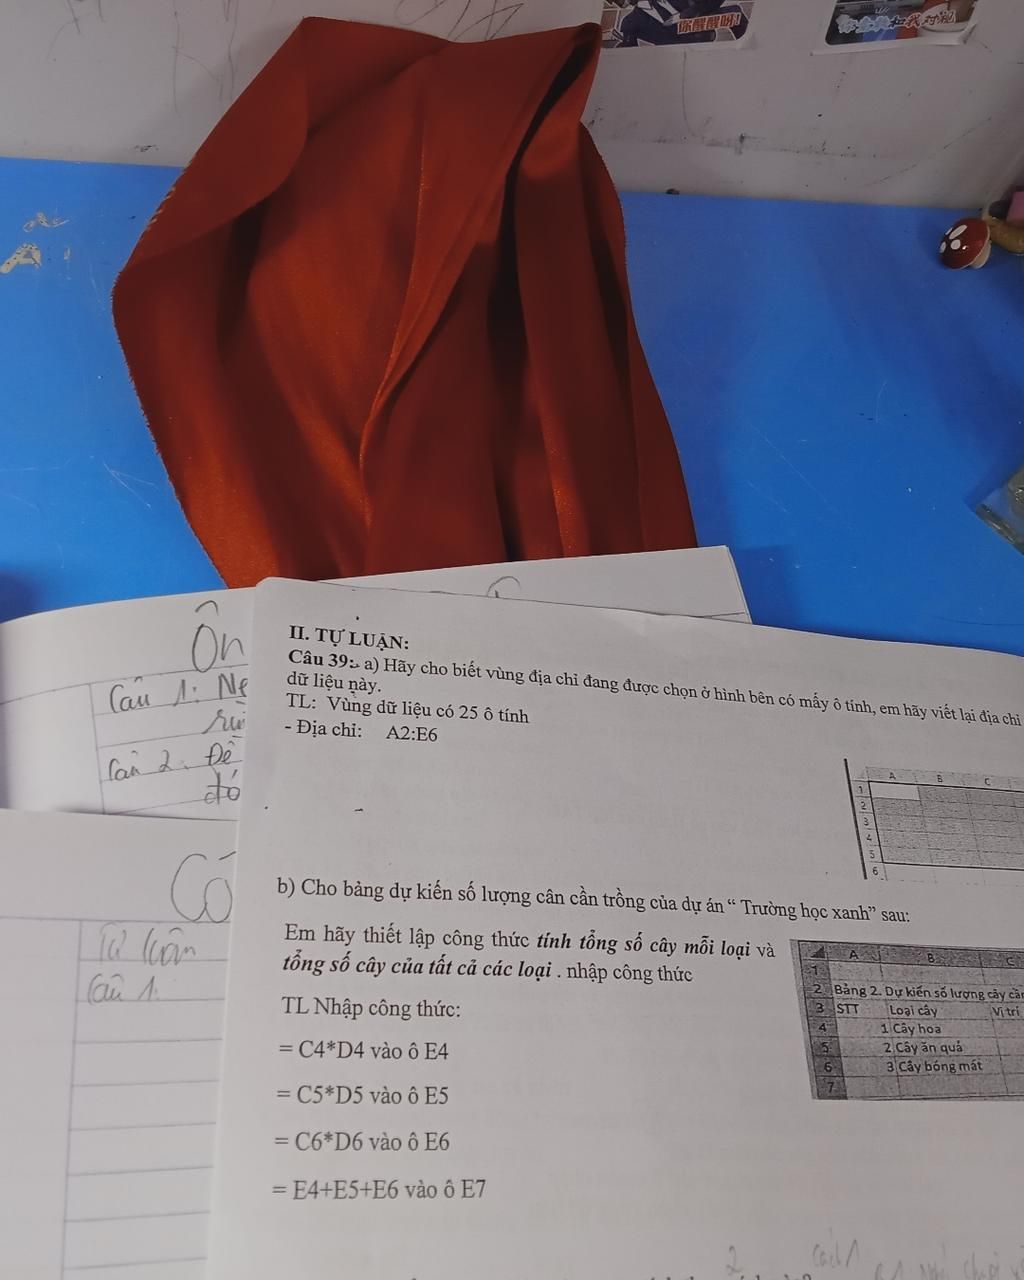 你醒醒呀!
Ôn
Câu 1: Ne
Câu 2: Đề
đó
II. TỰ LUẬN:
Câu 39:. a) Hãy cho biết vùng địa chỉ đang được chọn ở hình bên có mấy ô tính, em hãy viết lại địa chỉ
dữ liệu này.
TL: Vùng dữ liệu có 25 ô tính
- Địa chỉ: A2:E6
A B C
1
2
3
4
5
6
b) Cho bảng dự kiến số lượng cân cần trồng của dự án “ Trường học xanh” sau:
Có
Em hãy thiết lập công thức tính tổng số cây mỗi loại và
tổng số cây của tất cả các loại . nhập công thức
A B C
1
2 Bảng 2. Dự kiến số lượng cây cần
3 STT Loại cây Vị trí
4 1 Cây hoa
5 2 Cây ăn quả
6 3 Cây bóng mát
7
Tự luận
Câu 1.
TL Nhập công thức:
= C4*D4 vào ô E4
= C5*D5 vào ô E5
= C6*D6 vào ô E6
= E4+E5+E6 vào ô E7
2 cách 1